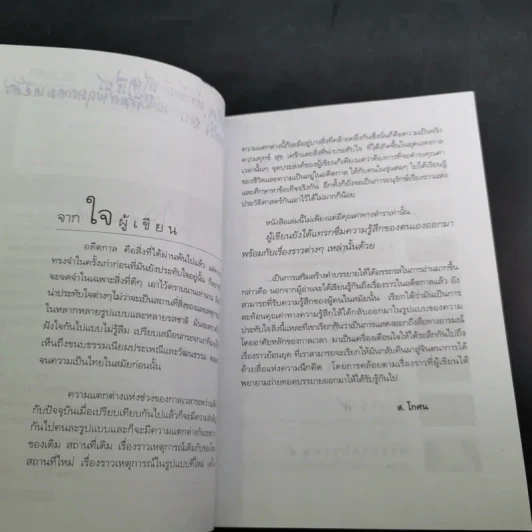 จาก ใจ ผู้เขียน
อดีตกาล คือสิ่งที่ได้ผ่านพ้นไปแล้ว
ทรงจำในครั้งเก่าก่อนที่มันยังประทับใจอยู่นั้น
จะจดจำในเฉพาะสิ่งที่ดีๆ เอาไว้ตราบนานเท่านาน
น่าประทับใจต่างๆไม่ว่าจะเป็นสถานที่สิ่งของและ
ในหลากหลายรูปแบบและหลายรสชาติ
ฝังใจกันไปแบบไม่รู้ลืม เปรียบเสมือนกระจกเงา
เห็นถึงขนบธรรมเนียมประเพณีและวัฒนธรรม
จนความเป็นไทยในสมัยก่อนนั้น
ความแตกต่างแห่งช่วงของกาลเวลาระหว่าง
กับปัจจุบันเมื่อเปรียบเทียบกันไปแล้วก็จะมีความ
กันไปคนละรูปแบบและก็จะมีความแตกต่างกัน
ของเดิม สถานที่เดิม เรื่องราวเหตุการณ์เดิม
สถานที่ใหม่ เรื่องราวเหตุการณ์ในรูปแบบที่ใหม่
ความแตกต่างนี้ก็จะมีอยู่บางสิ่งที่คล้ายคลึงกันซึ่งนั่นก็คือความเป็นจริง
ความทุกข์ สุข เศร้าและสิ่งที่น่าประทับใจ ที่ได้เกิดขึ้นในยุคแห่งกาล
เวลานั้นๆ จุดประสงค์ของผู้เขียนก็เพียงแค่ว่าต้องการที่จะดำรงคุณค่า
ของชีวิตและความเป็นอยู่ในอดีตกาล ให้กับคนในรุ่นต่อๆ ไปได้เรียนรู้
และศึกษาหาข้อเท็จจริงกัน อีกทั้งก็ยังจะเป็นการอนุรักษ์เรื่องราวแห่ง
ประวัติศาสตร์กันเอาไว้ได้ไม่มากก็น้อย
หนังสือเล่มนี้ไม่เพียงแต่มีคุณค่าทางตำราเท่านั้น...
ผู้เขียนยังได้แทรกซึมความรู้สึกของตนเองออกมา
พร้อมกับเรื่องราวต่างๆ เหล่านั้นด้วย
...เป็นการเสริมสร้างคำบรรยายให้ได้อรรถรสในการอ่านมากขึ้น
กล่าวคือ นอกจากผู้อ่านจะได้เรียนรู้กันถึงเรื่องราวในอดีตกาลแล้ว ยัง
สามารถที่จะรับความรู้สึกของผู้คนในสมัยนั้น เรียกได้ว่ามันเป็นการ
สะท้อนคุณค่าทางความรู้สึกให้ได้กลับออกมาในรูปแบบของความ
ประทับใจสิ่งนี้แหละที่เขาเรียกกันว่าเป็นการแสดงออกถึงสื่อทางอารมณ์
โดยอาศัยหลักของกาลเวลา มาเป็นเครื่องเตือนใจให้ได้ระลึกกันไปถึง
เรื่องราวย้อนยุค ที่เราสามารถจะเรียกให้มันกลับคืนมาสู่จินตนาการได้
ด้วยสื่อแห่งความนึกคิด โดยการคล้อยตามเรื่องราวที่ผู้เขียนได้
พยายามถ่ายทอดบรรยายออกมาให้ได้รับรู้กันไป
ส. โกศน